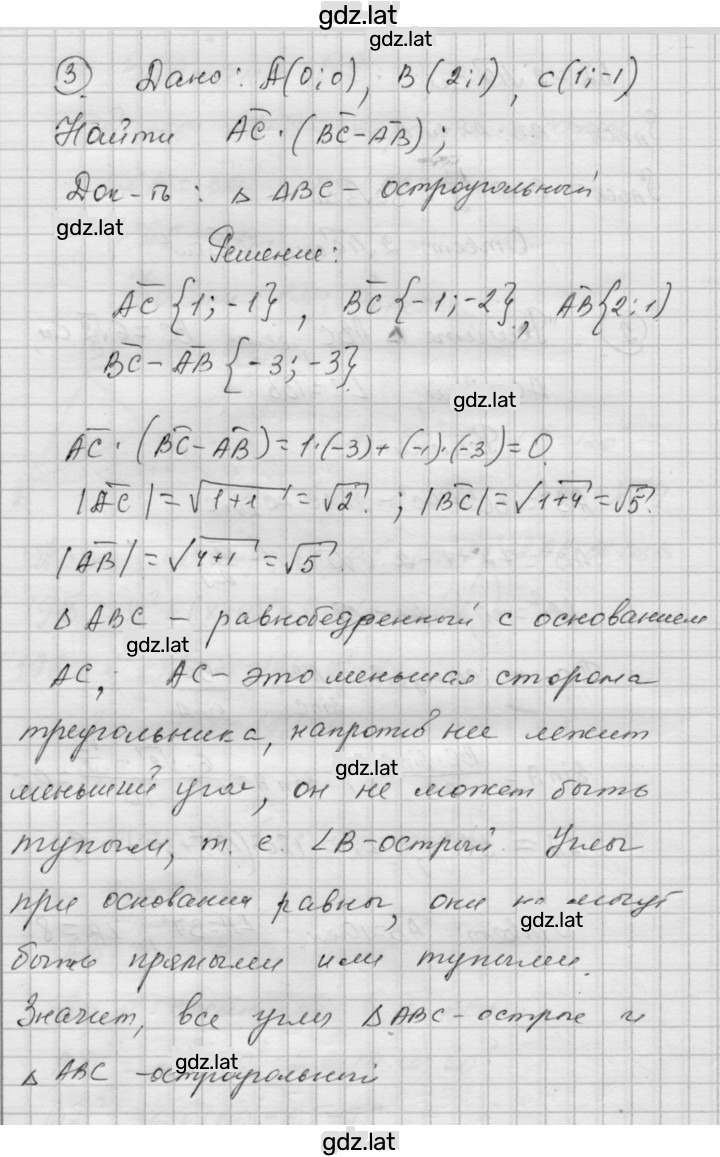 gdz.lat
gdz.lat
③ Дано: A(0;0), B(2;1), C(1;-1)
Найти AC·(BC-AB);
Док-ть: △ ABC - остроугольный
gdz.lat
Решение:
AC{1;-1}, BC{-1;-2}, AB{2;1}
BC-AB{-3;-3}
gdz.lat
AC·(BC-AB)=1·(-3)+(-1)·(-3)=0
|AC|=√1+1=√2; |BC|=√1+4=√5.
|AB|=√4+1=√5.
△ABC - равнобедренный с основанием
gdz.lat
AC; AC - это меньшая сторона
треугольника, напротив нее лежит
gdz.lat
меньший угол, он не может быть
тупым, т. е. ∠B-острый. Углы
при основании равны, они не могут
gdz.lat
быть прямыми или тупыми.
Значит, все углы △ABC-острые и
gdz.lat
△ ABC -остроугольный
gdz.lat